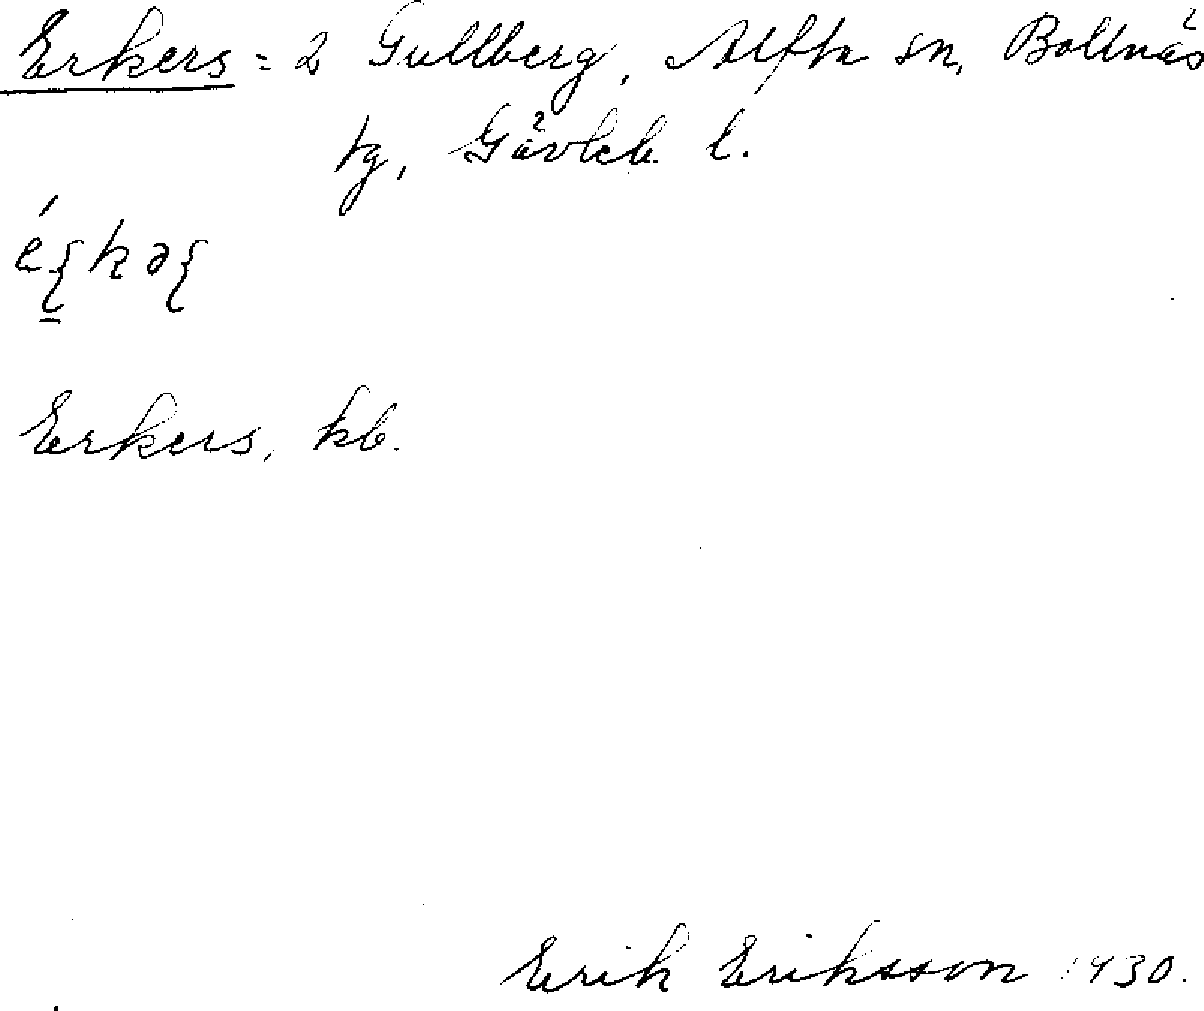 Erkers = 2 Gullberg, Alfta sn, Bollnäs
tg, Gävleb. l.
Erkers, kb.
Erik Eriksson 1930.